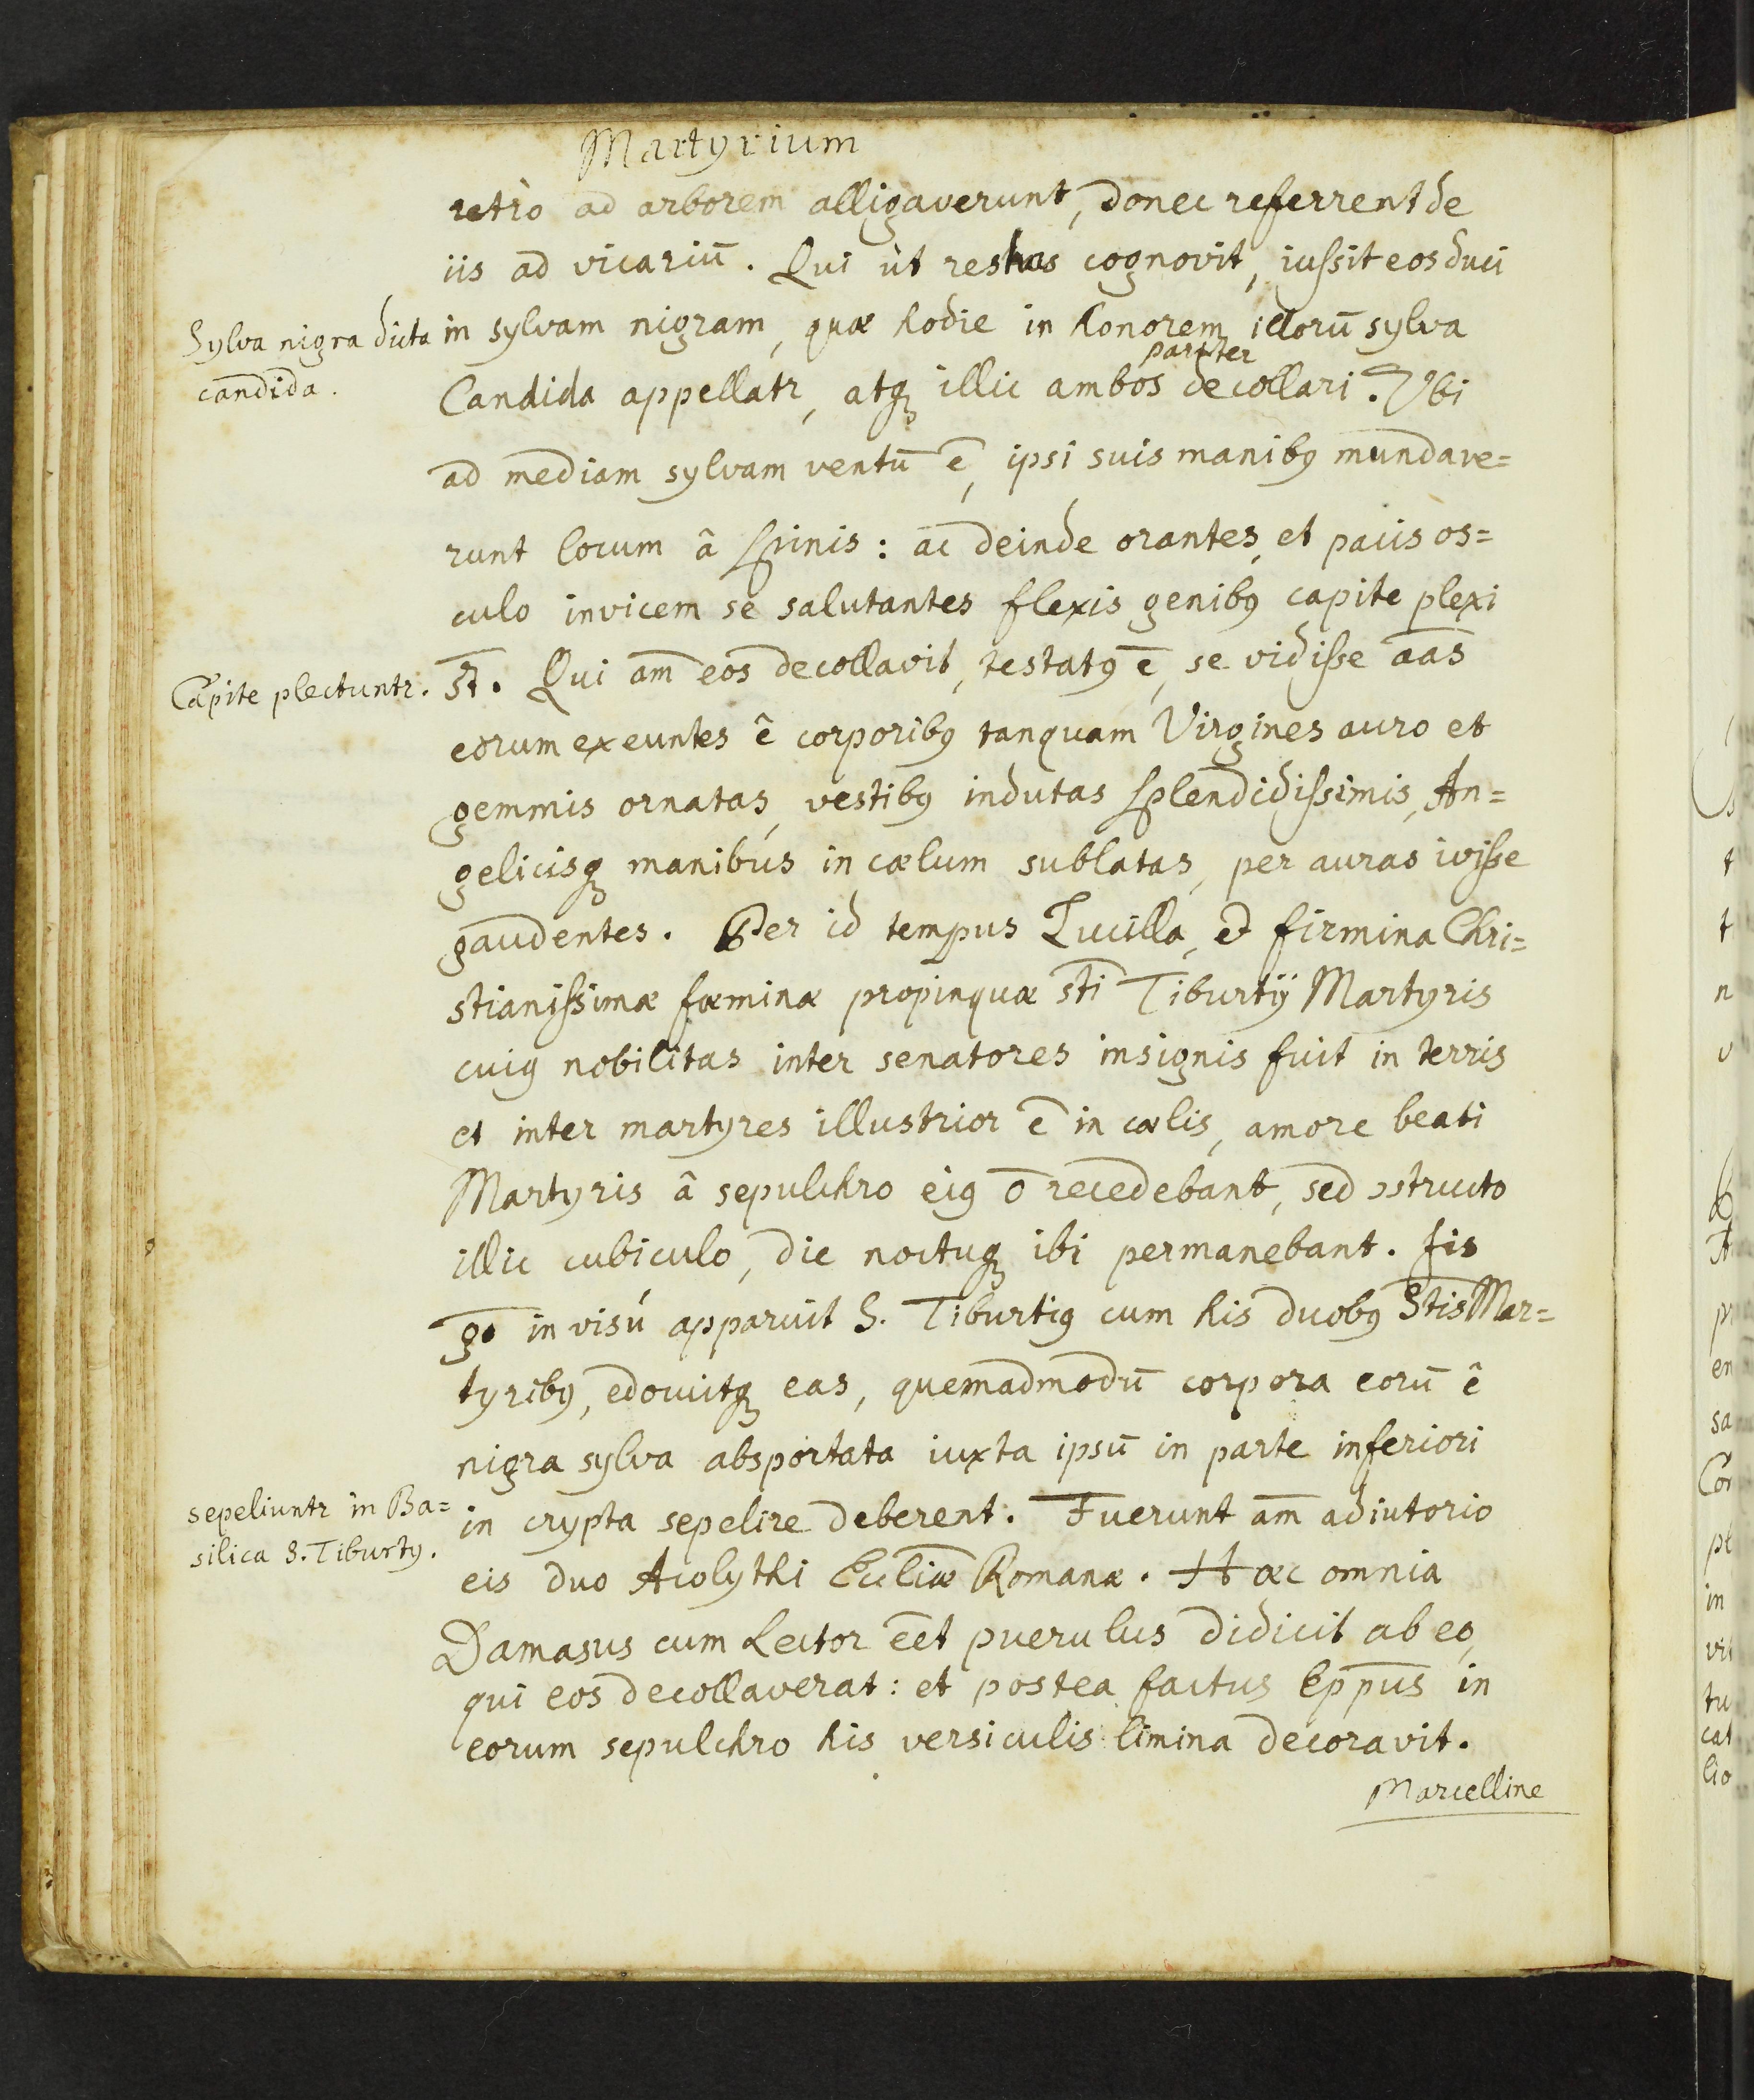 Martyrium
retrò ad arborem alligaverunt, donec referrent de
iis ad vicariū. Qui ùt res has cognovit, iussit eos duci
Sylva nigra dicta
candida.
in sylvam nigram, quæ hodie in honorem illorū sylva
pariter
Candida appellatr, atq illic ambos decollari. Ubi
ad mediam sylvam ventū ē, ipsi suis manibꝯ mundave=
runt locum â spinis: ac deinde orantes, et pacis os=
culo invicem se salutantes flexis genibꝯ capite plexi
Capite plectuntr.
st̄. Qui am̄ eos decollavit, testatꝯ ē, se vidisse āas
eorum exeuntes ê corporibꝯ tanquam Virgines auro et
gemmis ornatas, vestibꝯ indutas splendidissimis, An=
gelicisq manibús in cælum sublatas, per auras ivisse
gaudentes. Per id tempus Lucilla, et firmina Chri=
stianissimæ fœminæ propinquæ st̄i Tiburtij Martyris
cuiꝯ nobilitas inter senatores insignis fuit in terris
et inter martyres illustrior ē in cælis, amore beati
Martyris â sepulchro eiꝯ ō recedebant, sed ɔstructo
illic cubiculo, die noctuq ibi permanebant. Iis
ḡo in visú apparuit S. Tiburtiꝯ cum his duobꝯ St̄is Mar=
tyribꝯ, edocuitq eas, quemadmodū corpora eorū ê
nigra sylva absportata iuxta ipsū in parte inferiori
sepeliuntr in Ba=
silica S. Tiburtÿ.
in crypta sepelire deberent. Fuerunt am̄ adiutorio
eis duo Acolythi Eccl̄iæ Romanæ. Hæc omnia
Damasus cum Lector eēt puerulus didicit ab eo,
qui eos decollaverat: et postea factus Epp̄us in
eorum sepulchro his versiculis limina decoravit.
Marcelline